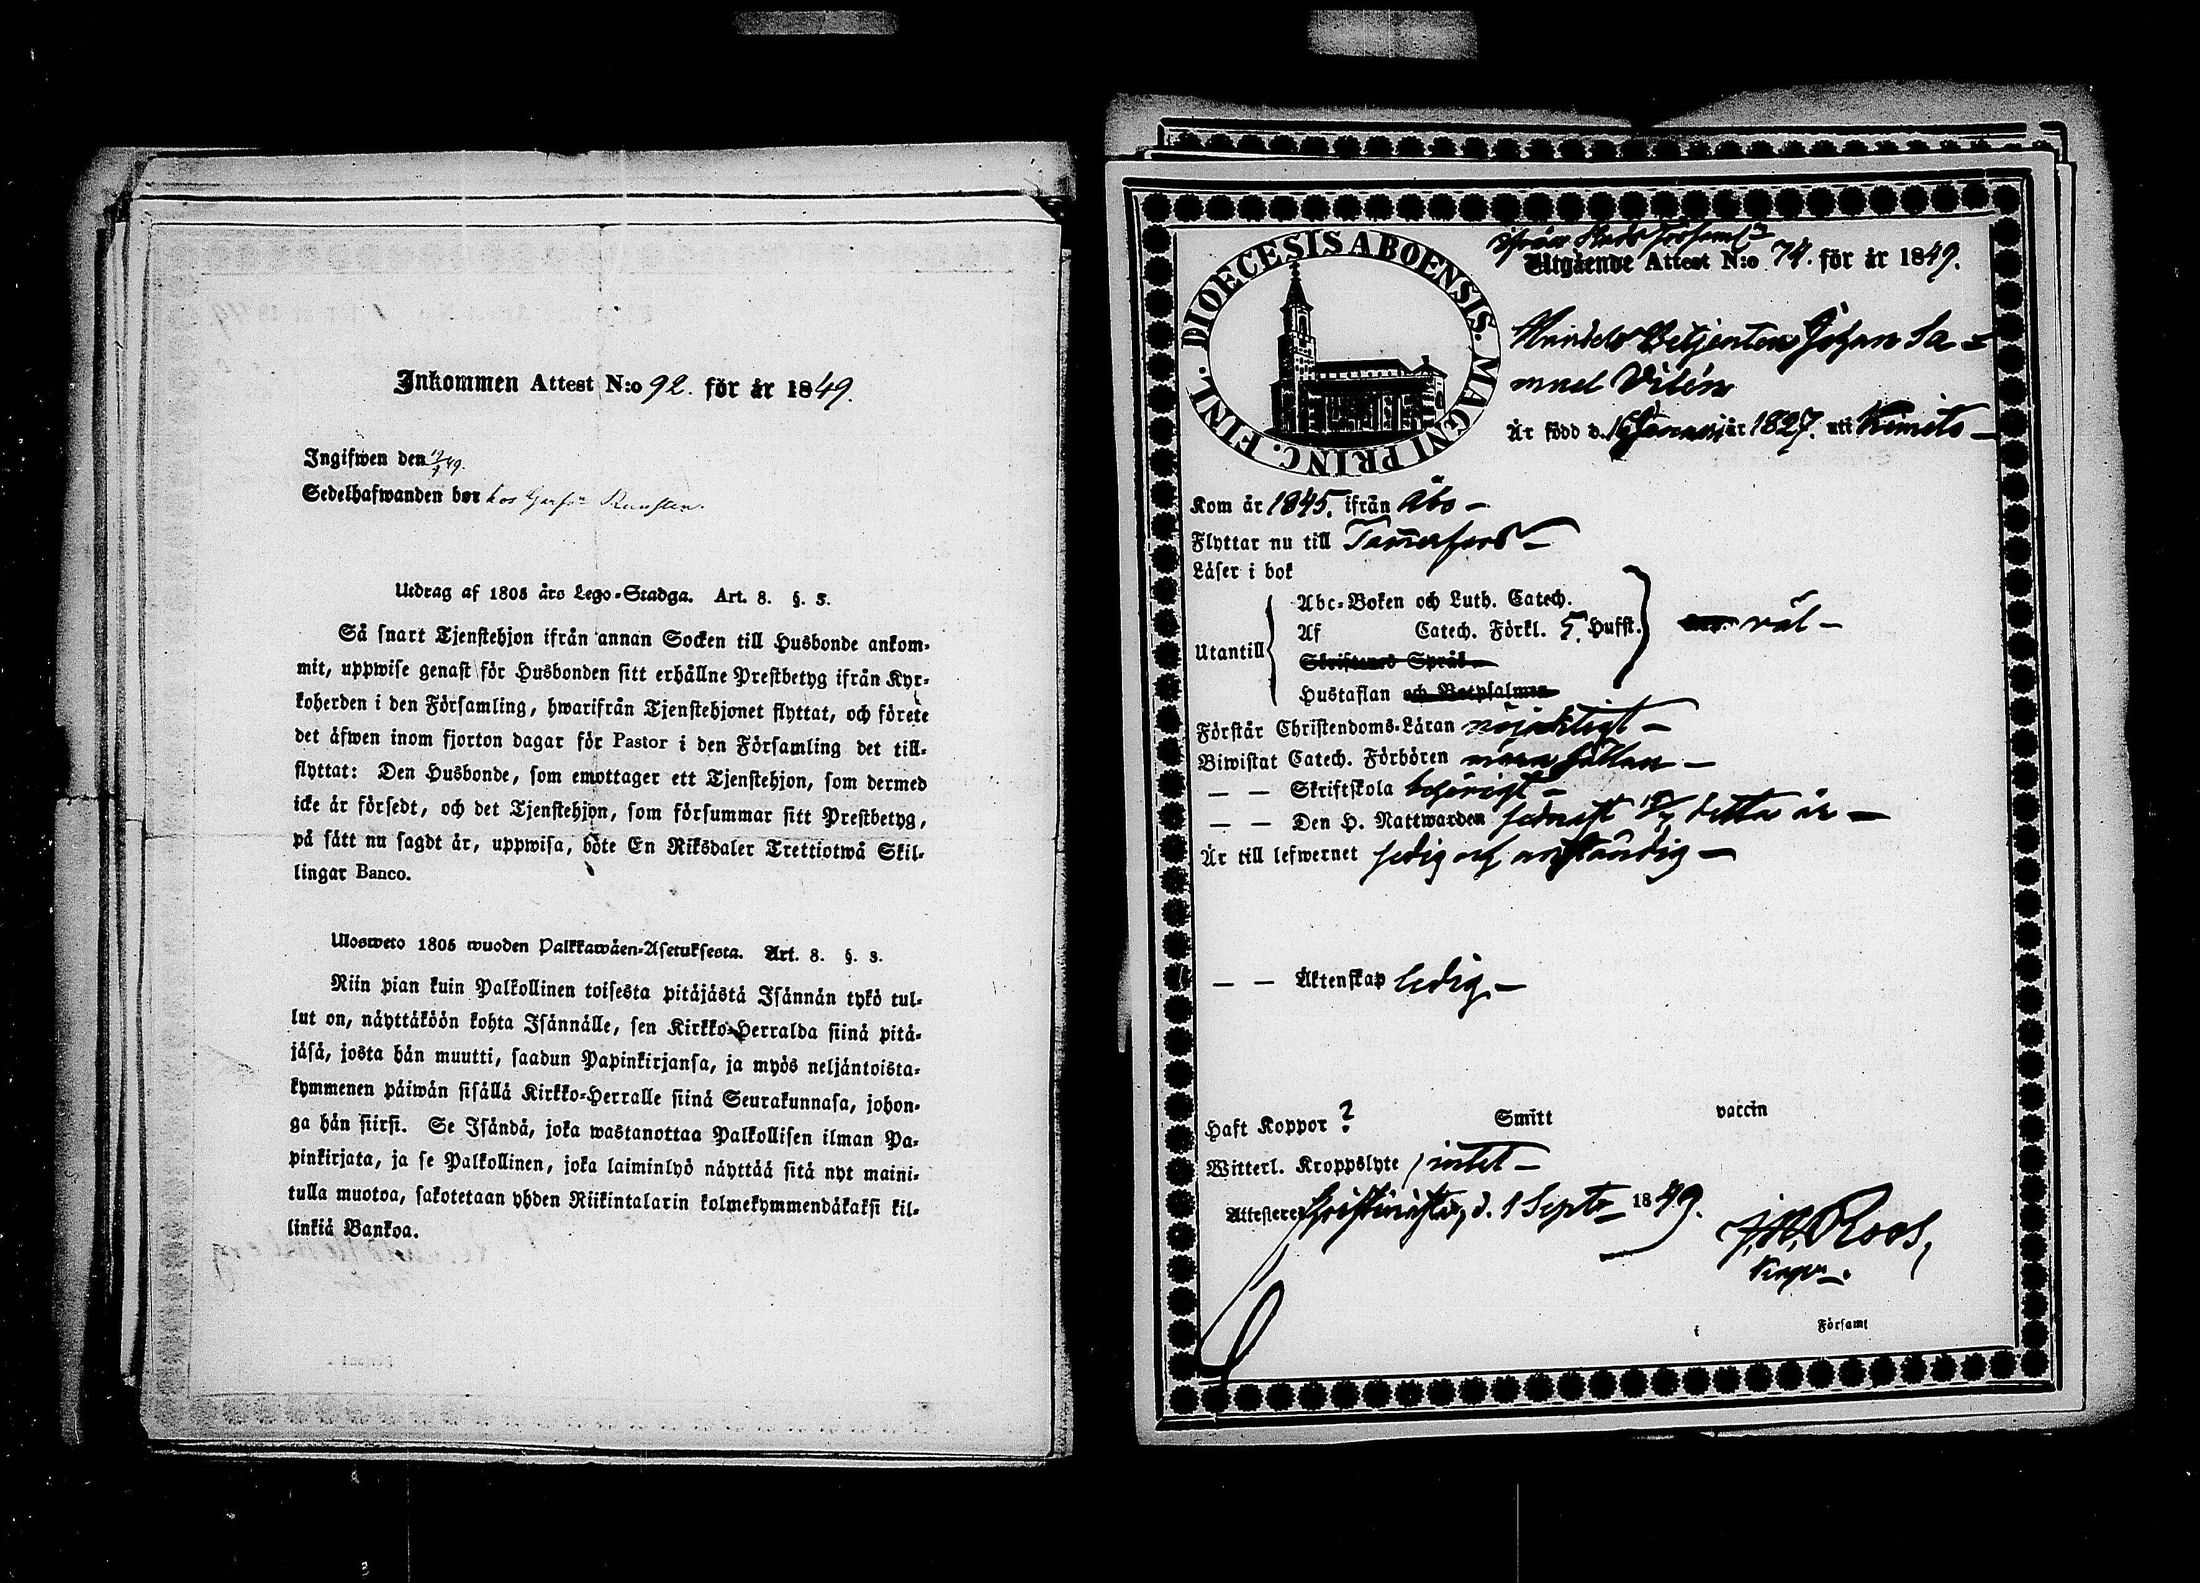 Inkommen Attest N:o 92. för år 1849.
Ingifwen den 19/9 49.
Sedelhafwanden bor hos
Utdrag af 1805 års Lego-Stadga. Art. 8. §. 3.
Så snart Tjenstehjon ifrån annan Socken till Husbonde ankom-
mit, uppwise genast för Husbonden sitt erhållne Prestbetyg ifrån Kyr-
koherden i den Församling, hwarifrån Tjenstehjonet flyttat, och förete
det äfwen inom fjorton dagar för Pastor i den Församling det till-
flyttat: Den Husbonde, som emottager ett Tjenstehjon, som dermed
icke är försedt, och det Tjenstehjon, som försummar sitt Prestbetyg,
på sätt nu sagdt är, uppwisa, böte En Riksdaler Trettiotwå Skil-
lingar Banco.
Ulosweto 1805 wuoden Palkkawäen-Asetuksesta. Art. 8. §. 3.
Niin pian kuin Palkollinen toisesta pitäjästä Isännän tykö tul-
lut on, näyttäköön kohta Isännälle, sen Kirkko-Herralda siinä pitä-
jäsä, josta hän muutti, saadun Papinkirjansa, ja myös neljäntoista-
kymmenen päiwän sisällä Kirkko-Herralle siinä Seurakunnasa, johon-
ga hän siirsi. Se Isändä, joka wastanottaa Palkollisen ilman Pa-
pinkirjata, ja se Palkollinen, joka laiminlyö näyttää sitä nyt maini-
tulla muotoa, sakotetaan yhden Riikintalarin kolmekymmendäkaksi kil-
linkiä Bankoa.
DIOECESIS ABOENSIS. MAGNI PRINC. FINL.
från Stads församl:g
Utgående Attest N:o 74. för år 1849.
Betjenten Johan Sa-
muel Vilén
Är född d. 16 Januari år 1827. uti Kimito
Kom år 1845. ifrån Åbo
Flyttar nu till Tammerfors
Läser i bok
Utantill
Abc-Boken och Luth. Catech.
Af Catech. Förkl. 5. Hufst. väl
Skriftenes Språk
Hustaflan och Botpsalmen
Förstår Christendoms-Läran nöjaktigt
Biwistat Catech. Förhören
— — Skriftskola behörigt
— — Den H. Nattwarden sednast detta år
Är till lefwernet sedig och anständig
— — Äktenskap ledig.
Haft Koppor ? Smitt vaccin
Witterl. Kroppslyte intet
Attesterar Christinestad, d. 1 Septr 1849.
Roos,
i Församl